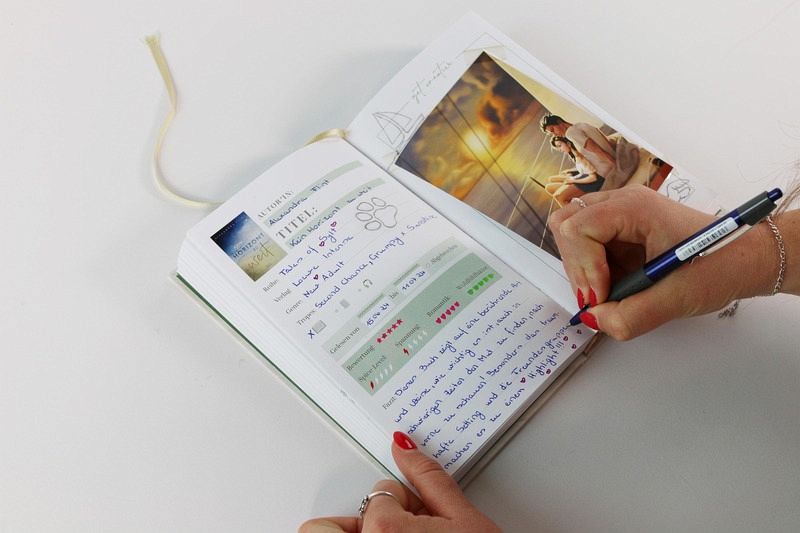 get creative
AUTOR*IN:
Alexandra Flint
TITEL:
Kein Horizont zu weit
HORIZONT
zu
weit
Reihe: Tales of Sylt
Verlag: Loewe Intense
Genre: New Adult
Tropes: Second Chance, Grumpy x Sunshine
X
Gelesen von 15.04.24 bis 17.04.24 Abgebrochen
Bewertung: Romantik Wohlfühlfaktor
Spice-Level Spannung
Fazit: Dieses Buch zeigt auf eine berührende Art
und Weise, wie wichtig es ist, auch in
schwierigen Zeiten den Mut zu finden, nach
vorne zu schauen! Besonders das traum-
hafte Setting und die Freundesgruppe
machen es zu einem Highlight!!!